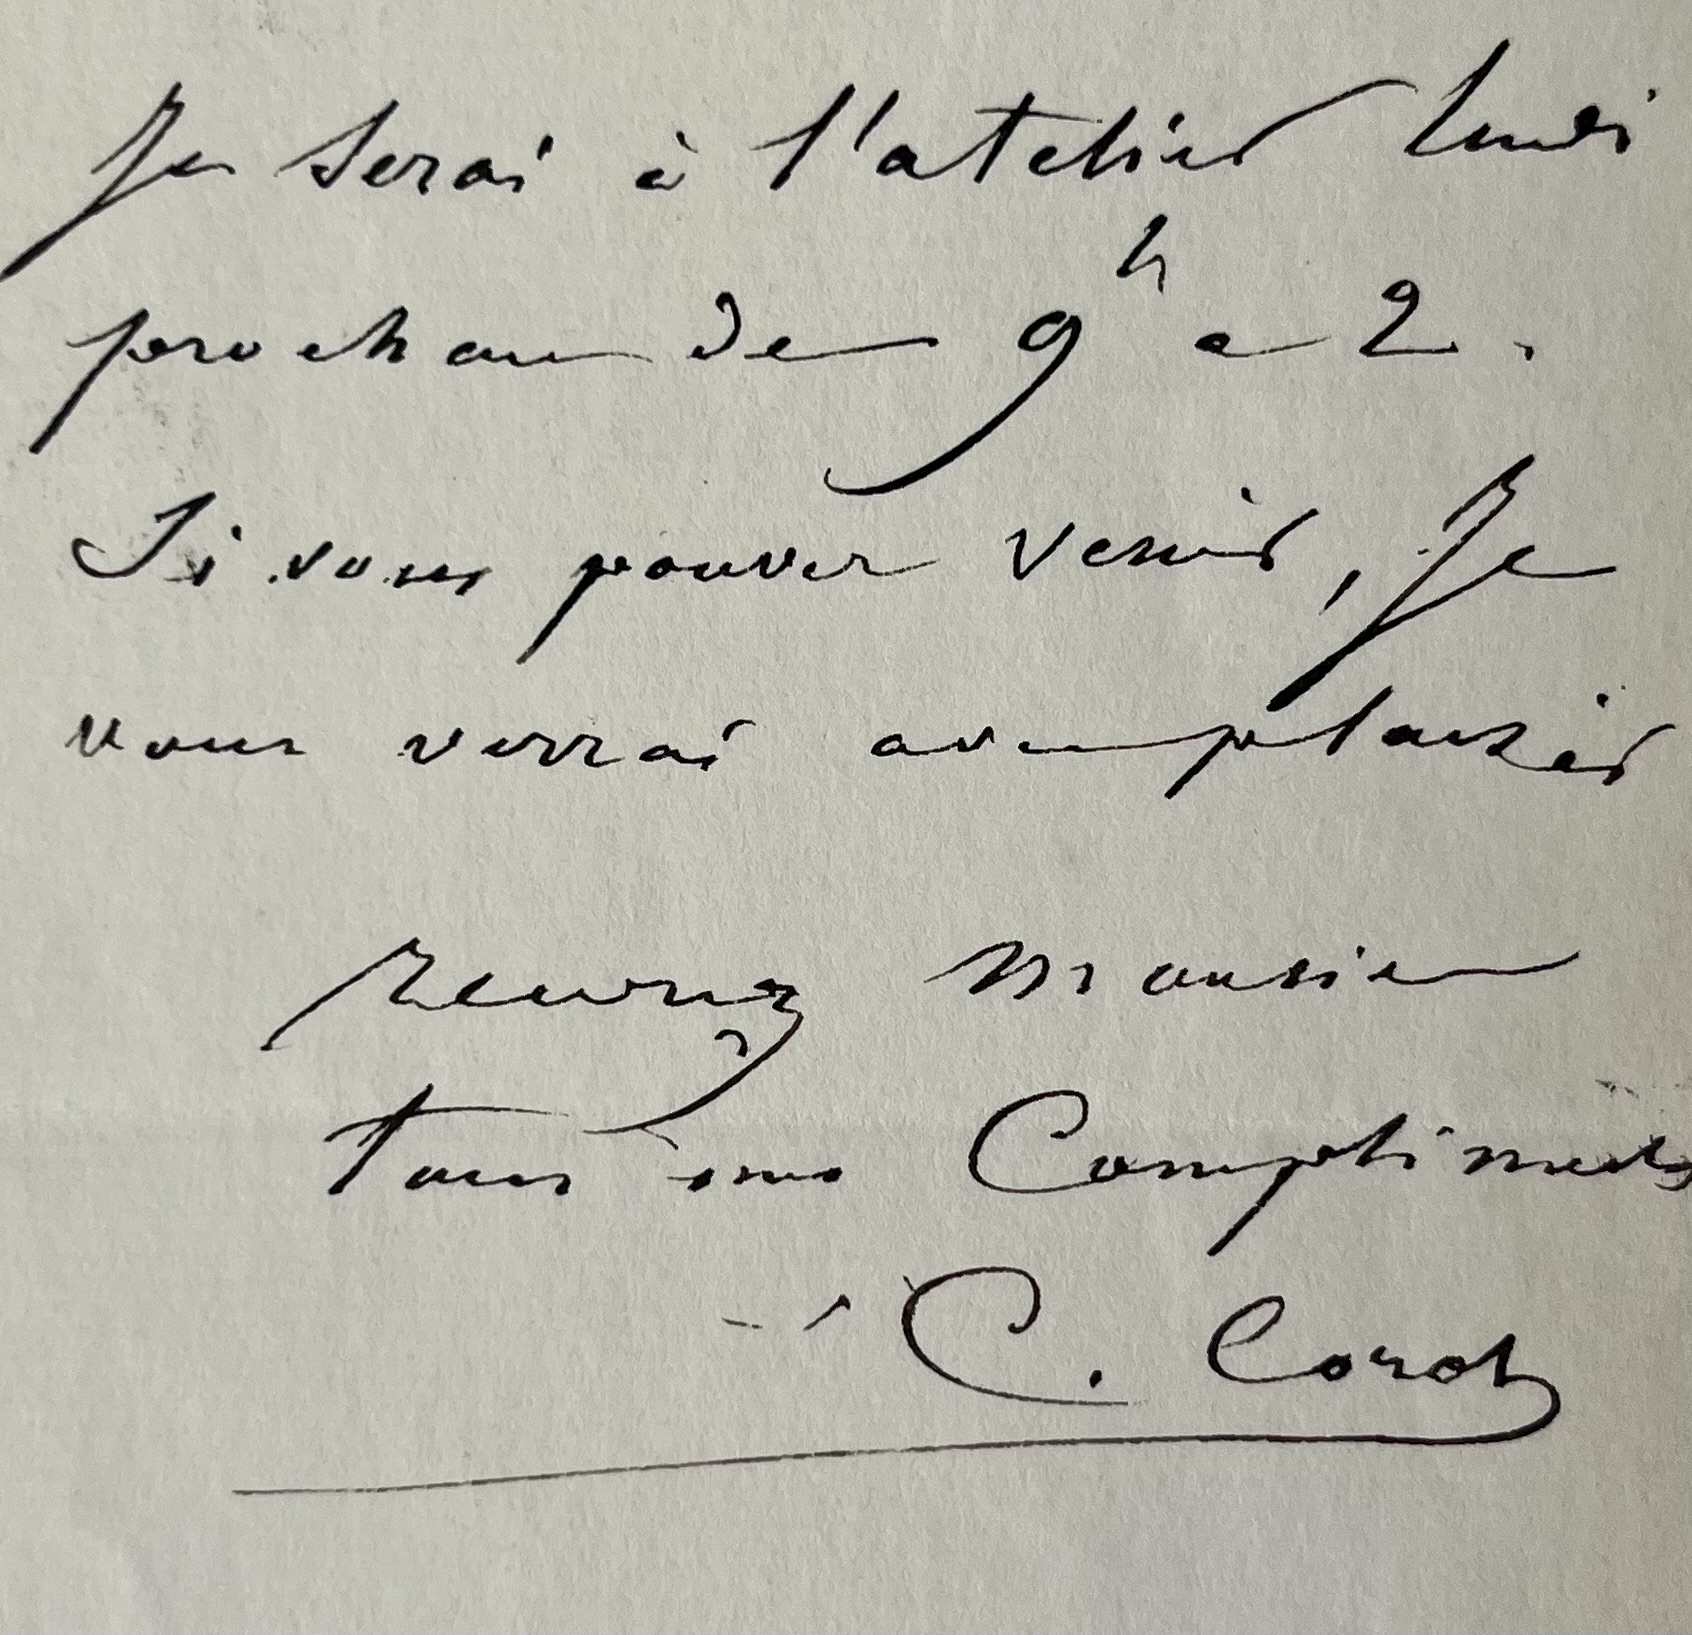 Je serai à l'atelier lundi
prochain de 9h a 2.
Si vous pouvez venir, Je
vous verrai avec plaisir
recevez Monsieur
tous mes Compliments
C. Corot